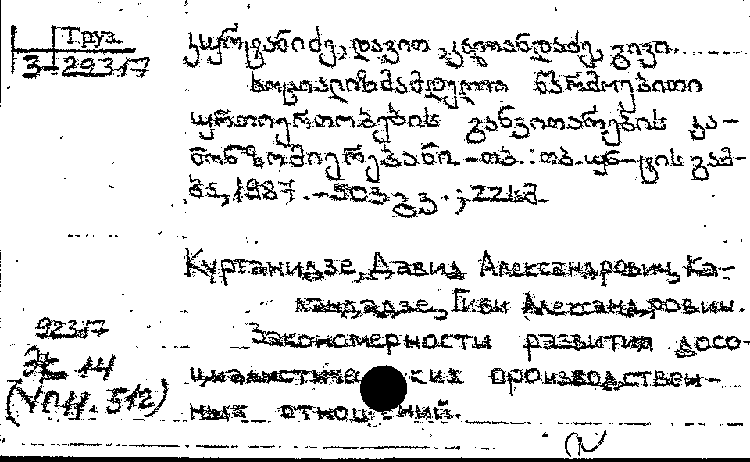 Груз.
3-29317
კურტანიძე, დავით, კალანდაძე, გივი.
სოციალიზმამდელი წარმოებითი
ურთიერთობების განვითარების კა-
ნონზომიერებანი. - თბ.: თბ. უნ-ტის გამ-
ба, 1987. - 503 გვ.; 22 სმ.
Куртанидзе, Давид Александрович, Ка-
ландадзе, Гиви Александрович.
Закономерности развития досо-
циалистиче ских производствен-
ных отношений.
92317
Эк 14
(УПН. 512)